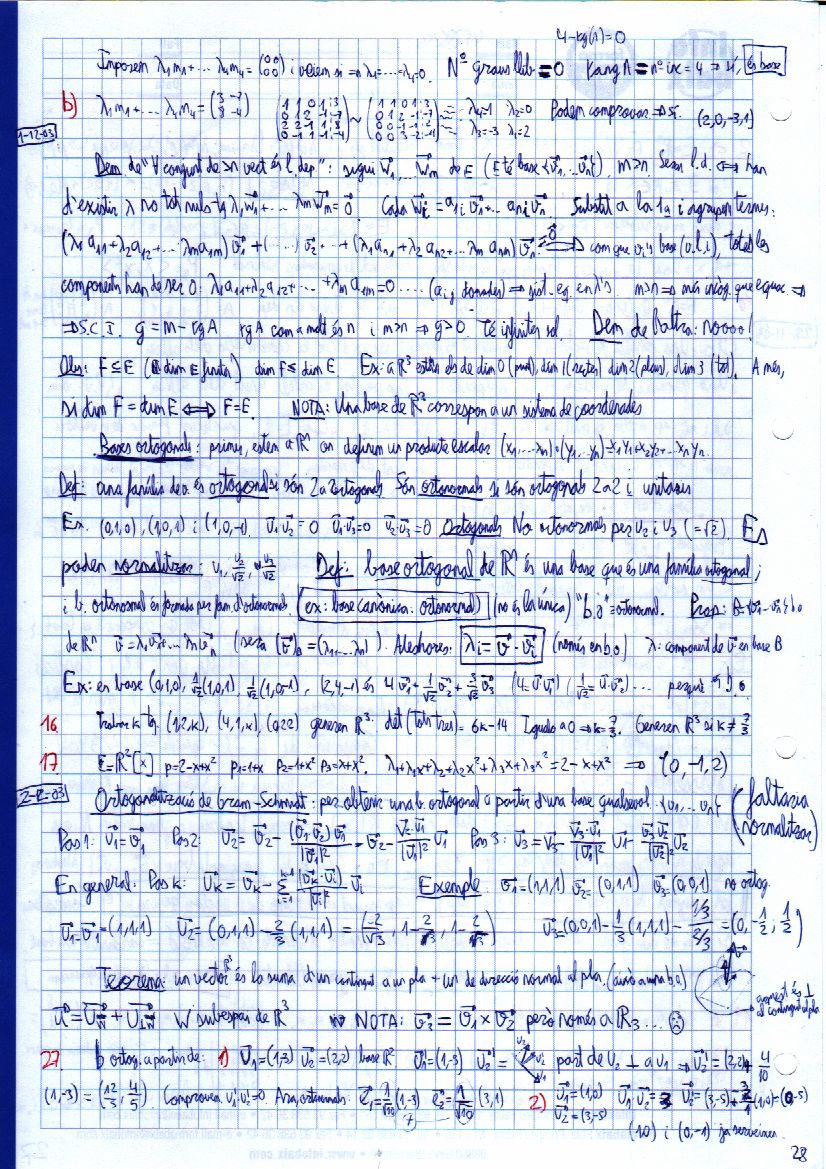 4-rg(A)=0
Imposem λ1m1+... λ4m4=(0 0 / 0 0) i veiem si =>λ1=...=λ4=0. Nº graus llib=0 Rang A=nº inc=4 => sí, és base
b) λ1m1+... λ4m4=(3 -7 / 8 -4) (1 1 0 1 : 3 / 0 1 2 -1 : -7 / 2 2 -1 1 : 8 / 0 -1 1 -1 : -4) ~ (1 1 0 1 : 3 / 0 1 2 -1 : -7 / 0 0 -1 -1 : 2 / 0 0 3 -2 : -11) λ4=1 λ2=0 λ3=-3 λ1=2 Podem comprovar => sí. (2,0,-3,1)
1-12-03
Dem de "∀ conjunt de >n vect és l.dep": sigui w1, ... wm de E (E té base {v1...vn}). m>n. Seran l.d. <=> han
d'existir λ no tot nuls tq λ1w1+... λmwm=0. Cada wi=a1i v1+... ani vn. Substit a la 1a i agrupem termes:
(λ1a11+λ2a12+... λma1m) v1+(...) v2+...+(λ1an1+λ2an2+... λm anm) vn=0 => com que vi's base (v.l.i), totes les
components han de ser 0: λ1a11+λ2a12+... +λma1m=0 .... (aij donades) => sist. eq. en λ's m>n => més incòg. que equac. =>
=> S.C.I. g=m-rgA rgA com a molt és n i m>n => g>0. Té infinites sol. Dem de l'altra: noooo!
Obs: F≤E (dim E finita) dim F≤dim E Ex: a R³ estan els de dim 0 (punt), dim 1 (rectes) dim 2 (plans), dim 3 (tot). A més,
si dim F=dim E <=> F=E. NOTA: Una base de R² correspon a un sistema de coordenades
Bases ortogonals: primer, estem a Rⁿ on definim un producte escalar (x1,...xn)·(y1,...yn)=x1y1+x2y2+...xnyn.
Def: una família de v. és ortogonal si són 2 a 2 ortogonals Són ortonormals si són ortogonals 2 a 2 i unitaris
Ex. (0,1,0), (1,0,1) i (1,0,-1). v1·v2=0 v1·v3=0 v2·v3=0 Ortogonals No ortonormals per v2 i v3 (=√2). Es
poden normalitzar: v1, v2/√2, v3/√2 Def: base ortogonal de Rⁿ és una base que és una família ortogonal;
i b. ortonormal és formada per fam. d'ortonormals. (ex: base canònica: ortonormal) (no és la única) "b.o"=ortonormal. Prop: B={v1...vn} b.o
de Rⁿ v=λ1v1+... λnvn (serà (v)B=(λ1,...λn)). Aleshores: λi=v·vi (només en b.o) λi: component de v en base B
Ex: en base (0,1,0), 1/√2(1,0,1), 1/√2(1,0,-1), (2,4,-1) és 4v1+1/√2 v2+3/√2 v3 (4=v·v1) (1/√2=v·v2)... perquè és b.o
16. Trobar k tq. (1,2,k), (4,1,k), (0,2,2) generen R³. det(Tots tres)=6k-14 Iguala a 0 => k=7/3. Generen R³ si k≠7/3
17 E=R²[x] p=2-x+x² p1=1+x p2=1+x² p3=x+x². λ1+λ1x+λ2+λ2x²+λ3x+λ3x²=2-x+x² => (0,-1,2)
2-12-03
Ortogonalització de Gram-Schmidt: per obtenir una b. ortogonal a partir d'una base qualsevol. {v1,... vn} (faltaria normalitzar)
Pas 1: u1=v1 Pas 2: u2=v2-(v1·v2)v1/|v1|²=v2-v2·u1/|u1|² u1 Pas 3: u3=v3-v3·u1/|u1|² u1-v3·u2/|u2|² u2
En general. Pas k: uk=vk-Σ(i=1, k-1) (vk·ui)/|ui|² ui Exemple v1=(1,1,1) v2=(0,1,1) v3=(0,0,1) no ortog.
u1=v1=(1,1,1) u2=(0,1,1)-2/3(1,1,1)=(-2/√3, 1-2/√3, 1-2/√3) u3=(0,0,1)-1/3(1,1,1)-(1/3)/(2/3) =(0,-1/2,1/2)
Teorema: un vector R³ és la suma d'un contingut a un pla + un de direcció normal al pla. (això a una b.o) aquest és ⊥ al contingut al pla
u=uw+u⊥w W subespai de R³ NOTA: v3=v1×v2 però només a R3...
27 b ortog. a partir de: 1) v1=(1,-3) v2=(2,2) base R² v1'=(1,-3) v2'= part de v2 ⊥ a v1 => v2'=(2,2)+4/10
(1,-3)=(12/5, 4/5) Comprovem v1'·v2'=0. Ara, ortonormals: e1=1/√10(1,-3) e2=1/√10(3,1) 2) v1=(1,0) v2=(3,-5) v1·v2=3 v2'=(3,-5)-3/1(1,0)=(0,-5)
(1,0) i (0,-1) ja serveixen.
28